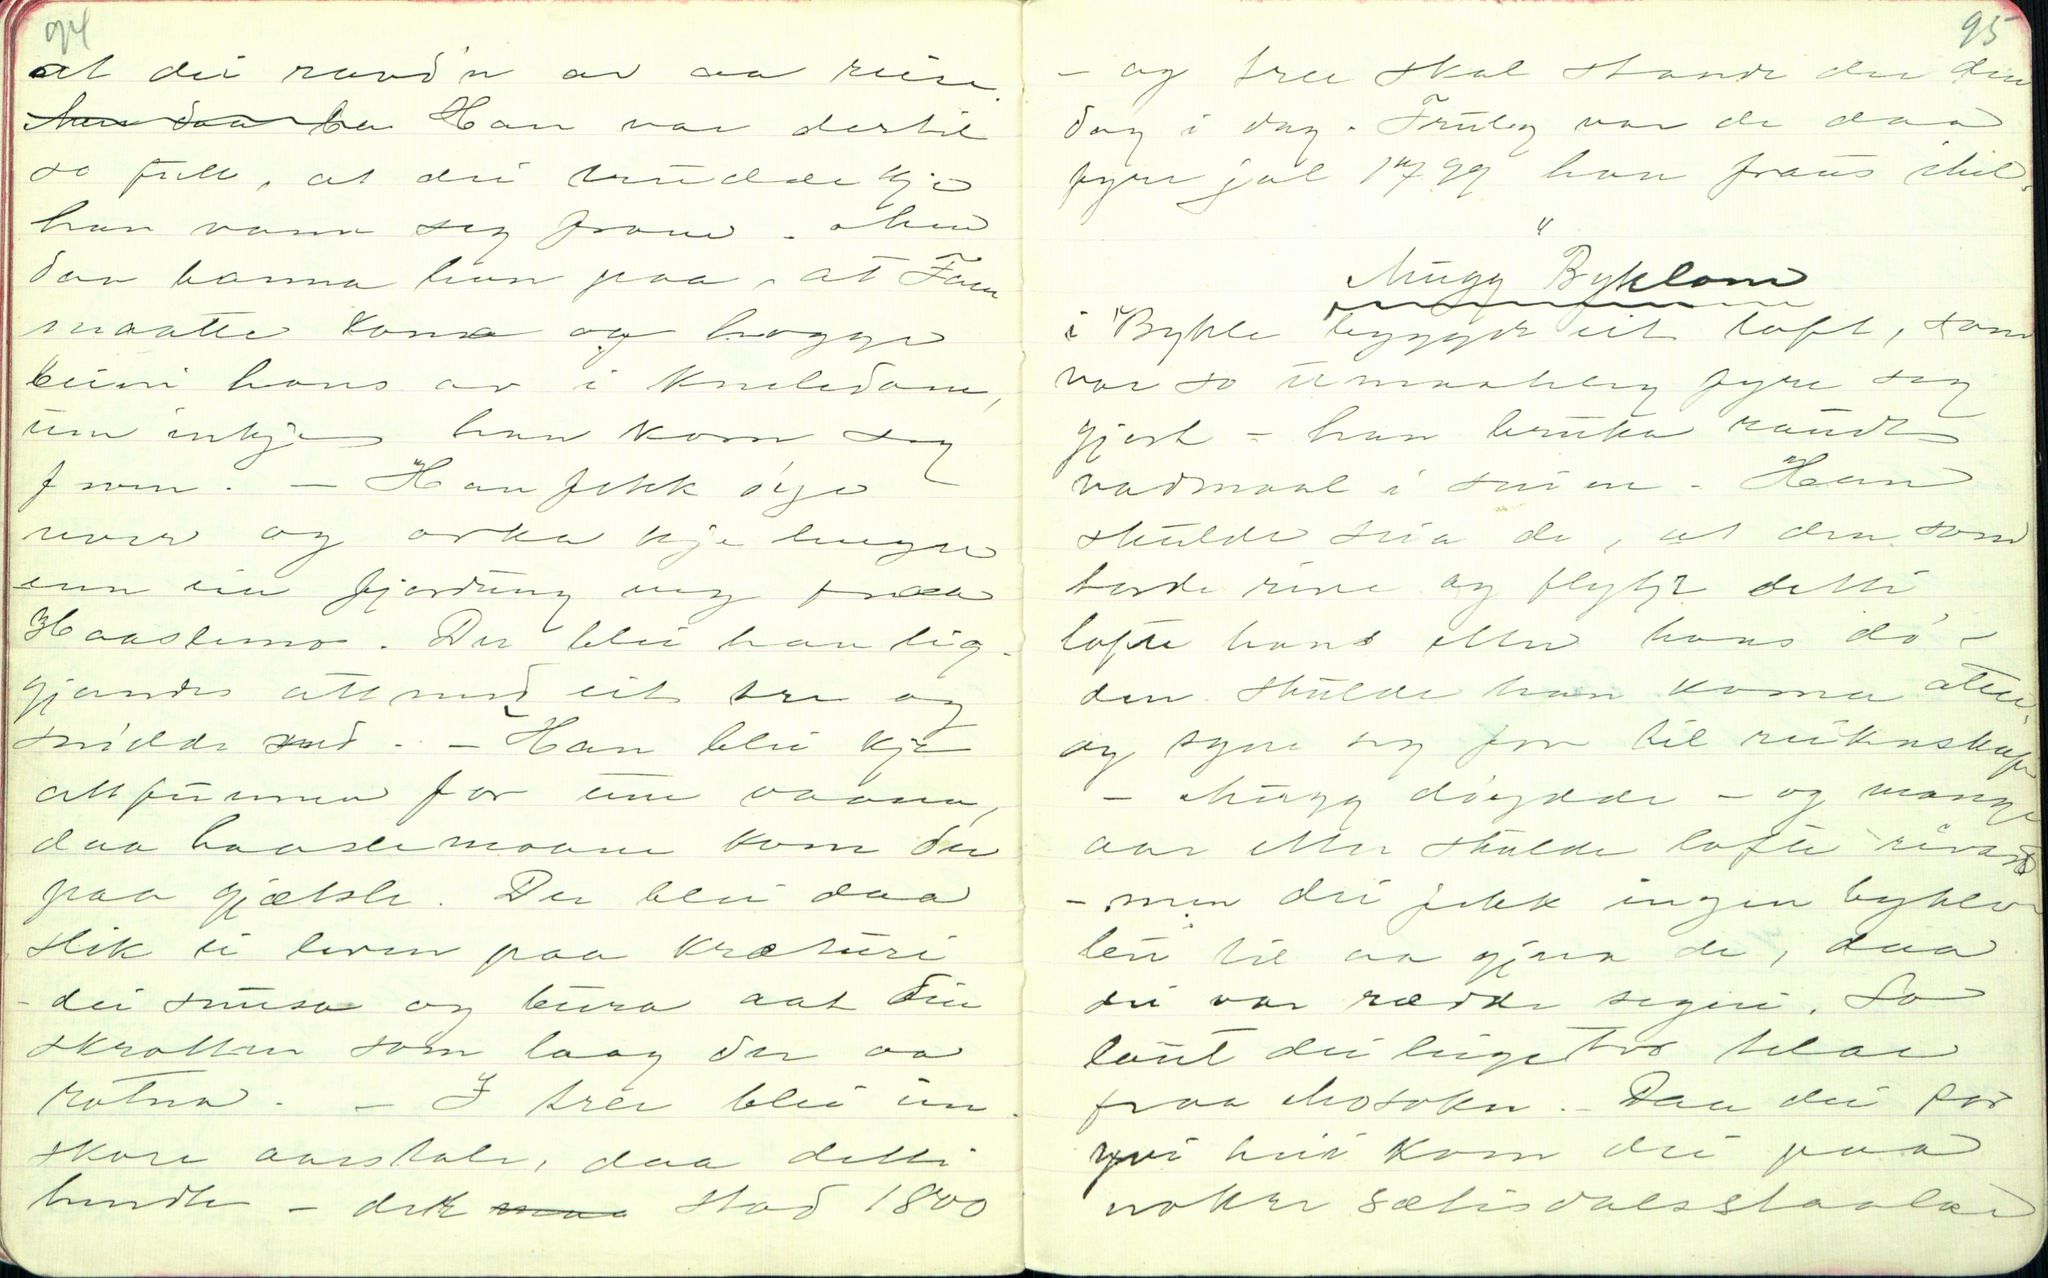 94
at dei raud'n av aa reise.
Men daa ba Han var dertil
so full, at dei trudde kje
han vann seg fram. Men
daa banna han paa, at Faen
maatte koma og hogge
beini hans av i knelidane,
um inkje han kom seg
fram. — Han fekk sige
uver og orka kje lenger
enn ein fjordung veg fraa
Haaslemo. Der blei han lig-
gjandes attmed eit tre og
snidde ned. — Han blei kje
attfunnen for um vaaren,
daa haaslemoane kom der
paa gjætsle. Der blei daa
slik ei leven paa kræturi
- dei snusa og bura aat den
skrotten som laag der aa
rotna. — I tree blei inn-
skore aarstale, daa detti
hendte — der maa stod 1800
95
- og tree skal stande der den
dag i dag. Truleg var de daa
fyre jol 1799 han fraus ihel.
"
Mugg Byklom
i Bykle byggde eit loft, som
var so umaateleg fyre seg
gjort - han bruka raudt
vadmaal i suene. Han
skulde seia de, at den som
torde rive og flytje detti
lofte hans etter hans dø -
den skulde han koma atter
og syne seg for til reiknskap
- Mugg døydde - og mange
aar etter skulde lofte rivast
- men dei fekk ingen bykle-
leu til aa gjera de, daa
dei var rædde segni. So
laut dei leige tvo telar
fraa Mosokn. - Daa dei for
yvi hei kom dei paa
nokre sætisdalsstaalar